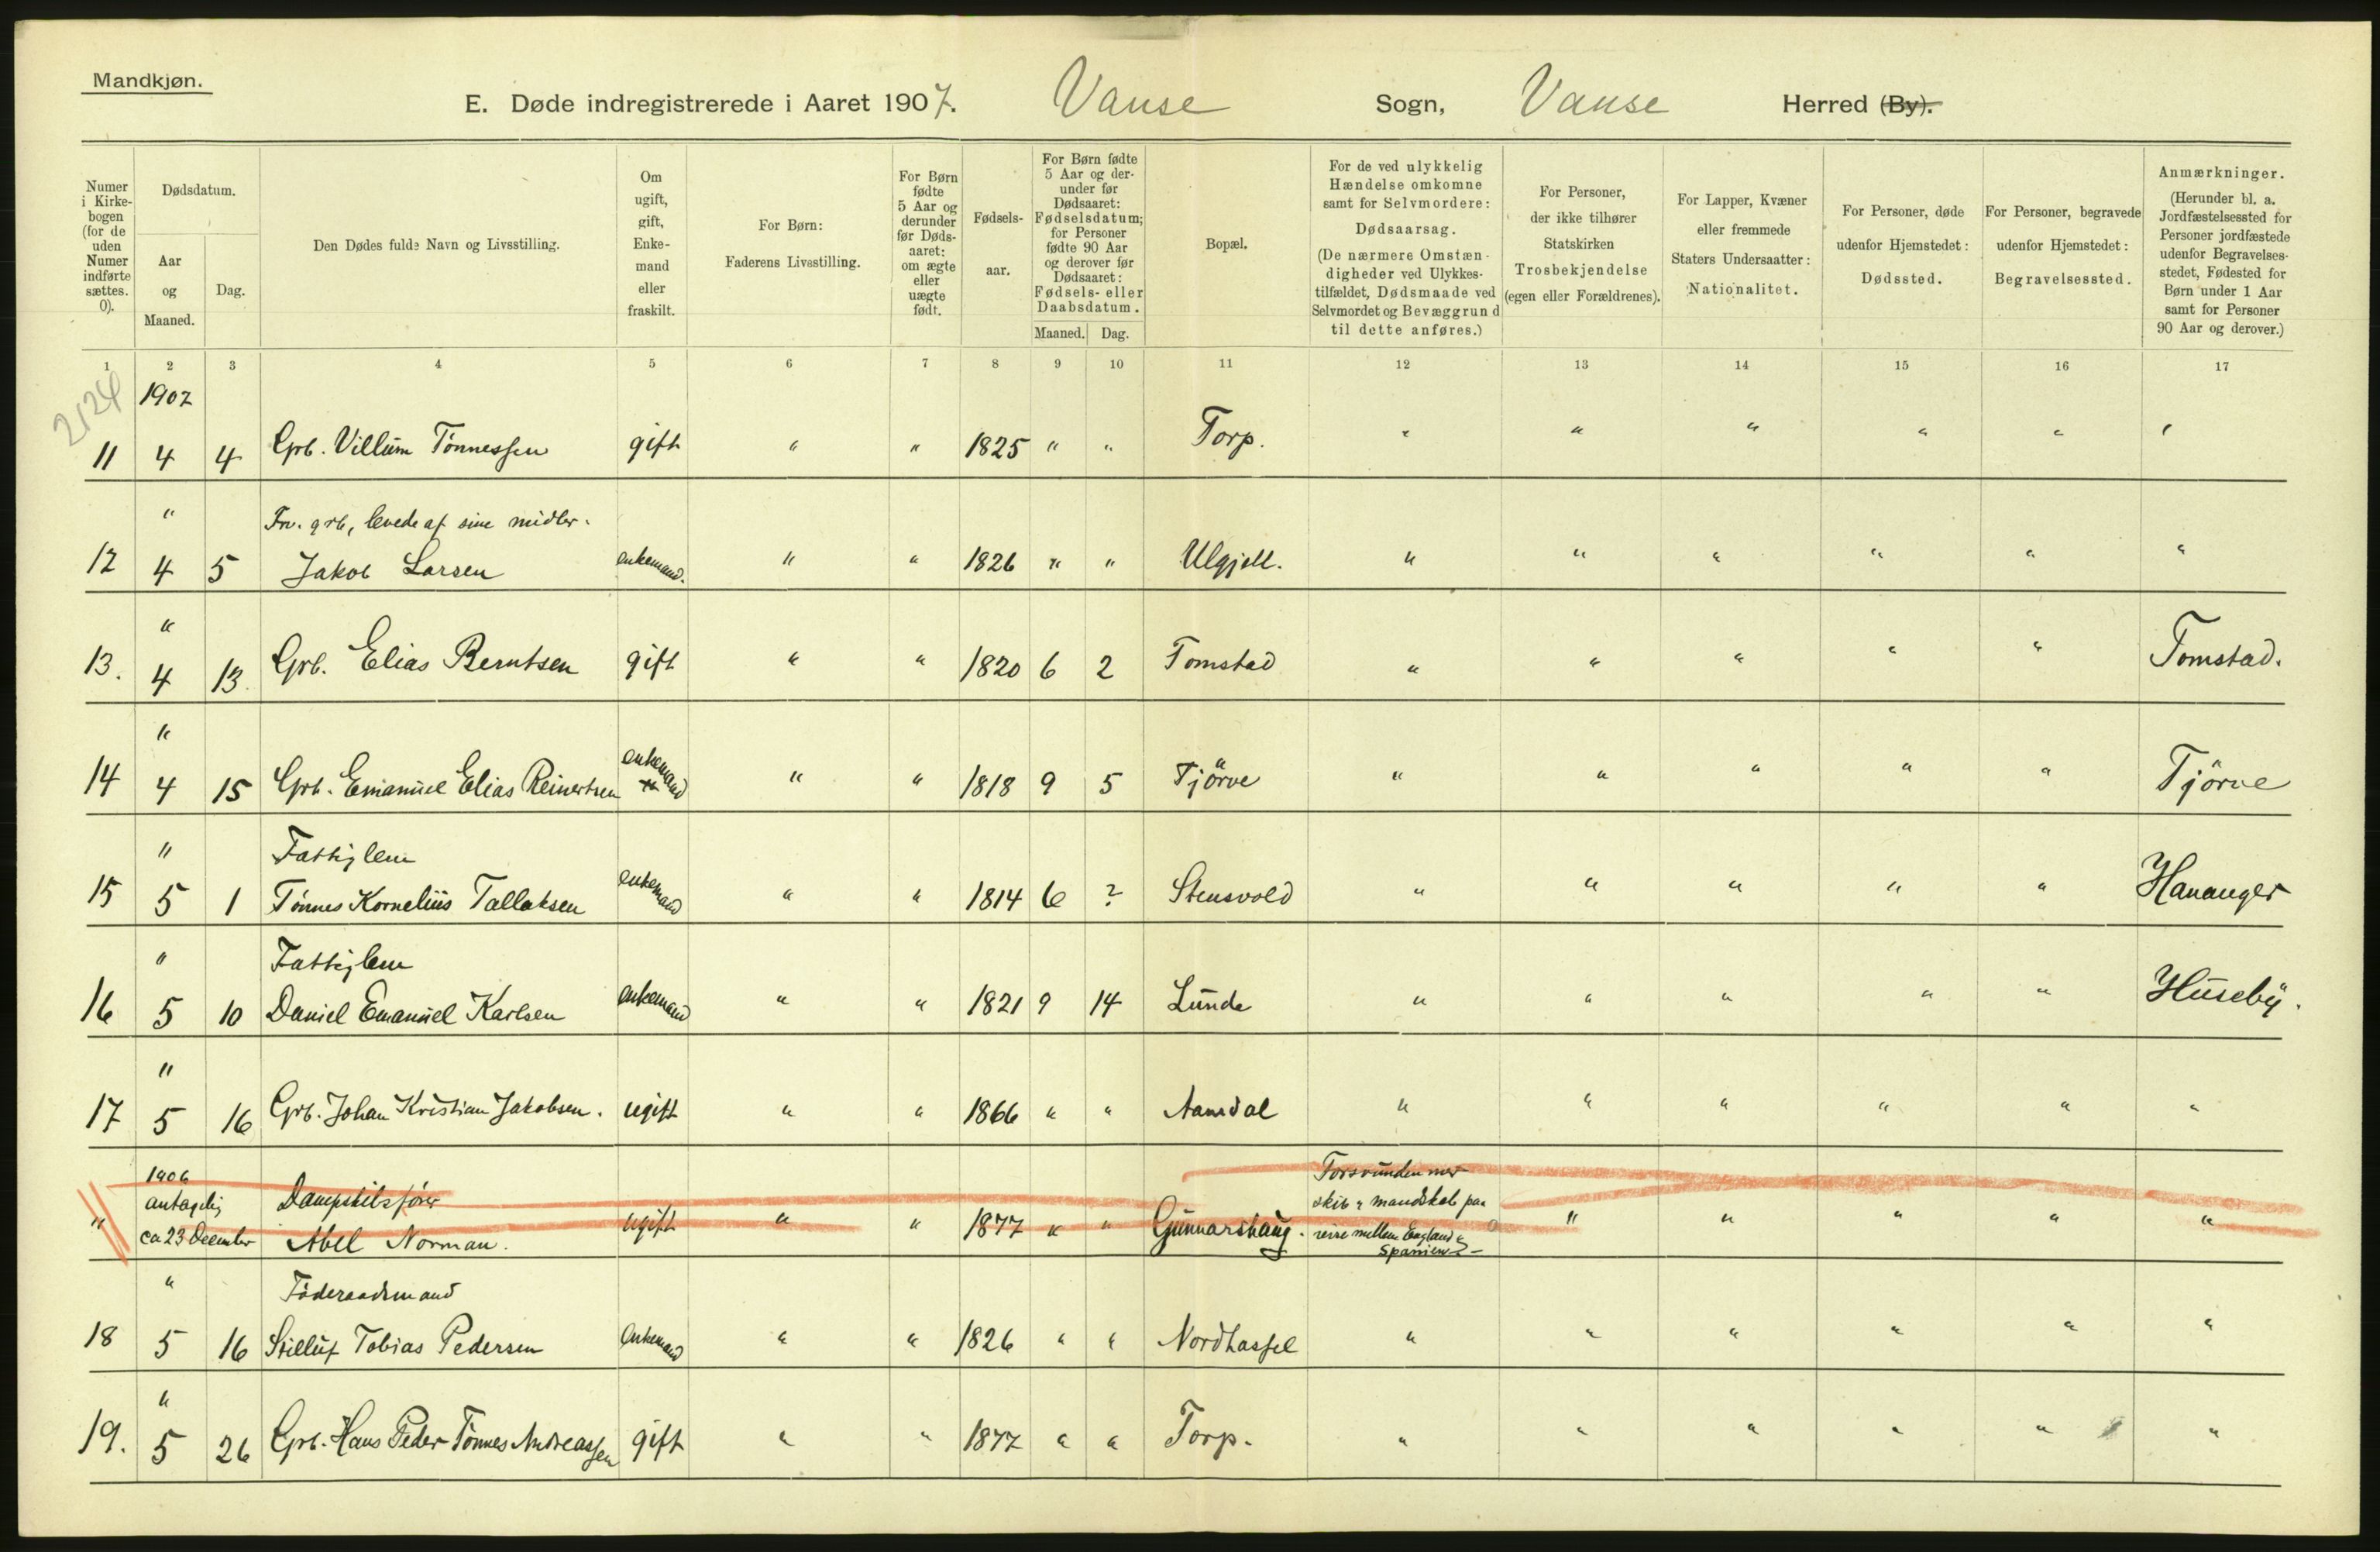 Mandkjøn.
E. Døde indregistrerede i Aaret 1907. Vanse Sogn, Vanse Herred (By).
Numer i Kirke-bogen (for de uden Numer indførte sættes. 0).
Dødsdatum.
Aar og Maaned.
Dag.
Den Dødes fulde Navn og Livsstilling.
Om ugift, gift, Enke-mand eller fraskilt.
For Børn: Faderens Livsstilling.
For Børn fødte 5 Aar og derunder før Døds-aaret: om ægte eller uægte født.
Fødsels-aar.
For Børn fødte 5 Aar og der-under før Dødsaaret: Fødselsdatum; for Personer fødte 90 Aar og derover før Dødsaaret: Fødsels- eller Daabsdatum.
Maaned. Dag.
Bopæl.
For de ved ulykkelig Hændelse omkomne samt for Selvmordere: Dødsaarsag. (De nærmere Omstæn-digheder ved Ulykkes-tilfældet, Dødsmaade ved Selvmordet og Bevæggrund til dette anføres.)
For Personer, der ikke tilhører Statskirken Trosbekjendelse (egen eller Forældrenes).
For Lapper, Kvæner eller fremmede Staters Undersaatter: Nationalitet.
For Personer, døde udenfor Hjemstedet: Dødssted.
For Personer, begravede udenfor Hjemstedet: Begravelsessted.
Anmærkninger. (Herunder bl. a. Jordfæstelsessted for Personer jordfæstede udenfor Begravelses-stedet, Fødested for Børn under 1 Aar samt for Personer 90 Aar og derover.)
1 2 3 4 5 6 7 8 9 10 11 12 13 14 15 16 17
2124
1907
11 4 4 Grb. Villum Tönnessen gift " " 1825 " " Torp. " " " " " "
" Frv. grb, levede af sine midler.
12 4 5 Jakob Larsen enkemand. " " 1826 " " Ulgjell. " " " " " "
"
13. 4 13. Grb. Elias Berntsen gift " " 1820 6 2 Tomstad " " " " " Tomstad.
"
14 4 15 Grb. Emanuel Elias Reinertsen enkemand " " 1818 9 5 Tjörve " " " " " Tjörve
" Fattiglem
15 5 1 Tönnes Kornelius Tallaksen enkemand " " 1814 6 ? Stensvold " " " " " Hananger
" Fattiglem
16 5 10 Daniel Emanuel Karlsen enkemand " " 1821 9 14 Lunde " " " " " Huseby.
"
17 5 16 Grb. Johan Kristian Jakobsen. ugift " " 1866 " " Aamdal " " " " " "
1906 Forsvunden med
antagelig Dampskibsfører skib & mandskab paa
" ca 23 December Abel Norman. ugift " " 1877 " " Gunnarshaug. reise mellem England & " " " " "
Spanien
" Föderaadsmand
18 5 16 Stilluf Tobias Pedersen Enkemand " " 1826 " " Nordhassel " " " " " "
"
19. 5 26 Grb. Hans Peder Tönnes Andreassen gift " " 1877 " " Torp. " " " " " "